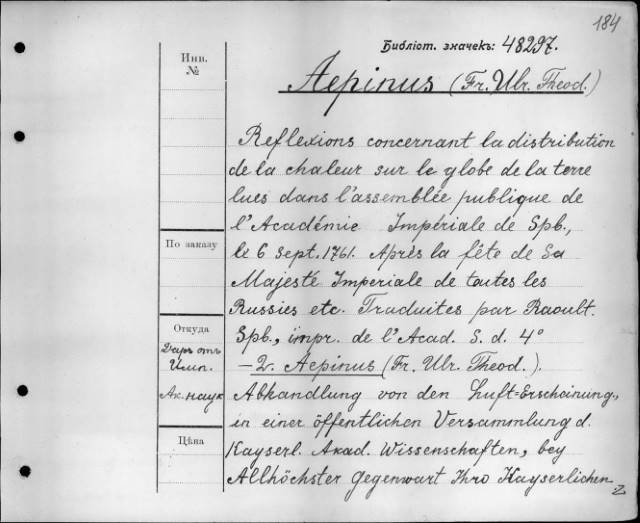 184
Библіот. значекъ: 48297.
Инв.
№
Aepinus (Fr. Ulr. Theod.)
Reflexions concernant la distribution
de la chaleur sur le globe de la terre
lues dans l'assemblée publique de
l'Académie Impériale de Spb.,
По заказу
le 6 Sept. 1761. Après la fête de Sa
Majesté Imperiale de toutes les
Russies etc. Traduites par Raoult.
Откуда
Spb., impr. de l'Acad. S. d. 4°
Даръ отъ
Имп.
Ак. наукъ
– 2. Aepinus (Fr. Ulr. Theod.).
Abhandlung von den Luft=Erscheinung,
in einer öffentlichen Versammlung d.
Цѣна
Kayserl. Akad. Wissenschaften, bey
Allhöchster Gegenwart Ihro Kayserlichen